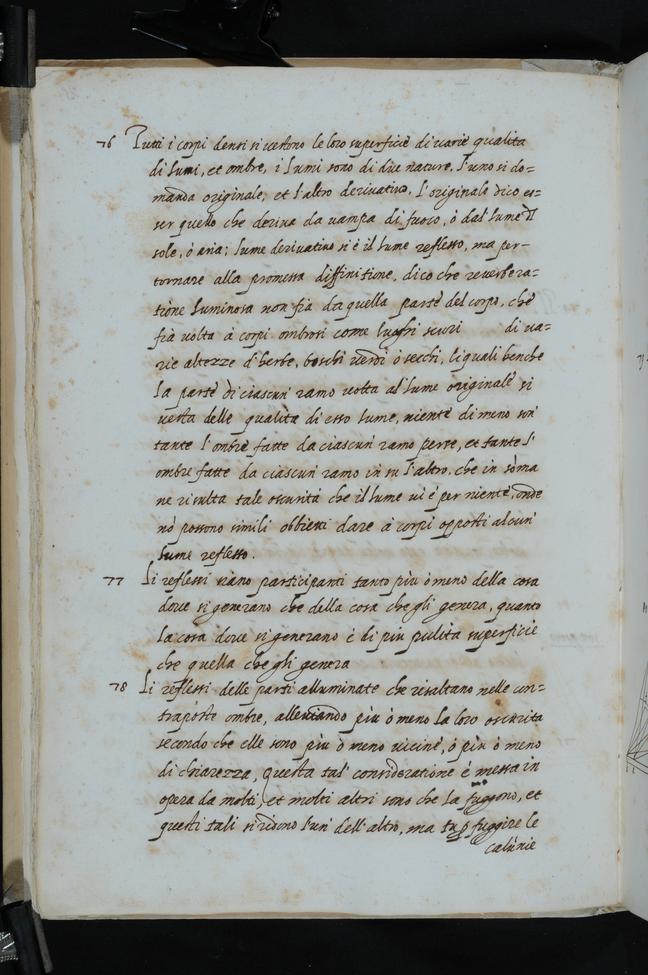 76 Tutti i corpi densi si vestono le loro superficie di varie qualita
di lumi, et ombre, i lumi sono di due nature, l'uno si do=
manda originale, et l'altro derivativo, l'originale dico es=
ser quello che deriva da vampa di fuoco, ò dal lume dl
sole, ò aria; lume derivativo si è il lume reflesso, ma per-
tornare alla promessa diffinitione, dico che reverbera=
tione luminosa non fia da quella parte del corpo, che
fia volta à corpi ombrosi come luoghi scuri di va=
rie altezze d'herbe, boschi verdi ò secchi, li quali benche
la parte di ciascun ramo volta al lume originale si
vesta delle qualità di esso lume, niente di meno son'
tante l'ombre fatte da ciascun ramo perse, et tante l'
ombre fatte da ciascun ramo in su l'altro, che in soma
ne risulta tale oscurità che il lume vi è per niente, onde
nò possono simili obbietti dare à corpi opposti alcun'
lume reflesso.
77 Li reflessi siano participanti tanto più ò meno della cosa
dove si generano che della cosa che gli genera, quanto
la cosa dove si generano è di piu pulita superficie
che quella che gli genera
78 Li reflessi delle parti alluminate che risaltano nelle con=
traposte ombre, alleviando più ò meno la loro oscurita
secondo che elle sono più ò meno vicine, ò più ò meno
di chiarezza, questa tal' consideratione è messa in
opera da molti, et molti altri sono che la fuggono, et
questi tali si ridono l'un' dell'altro, ma tu p fuggire le
calùnie